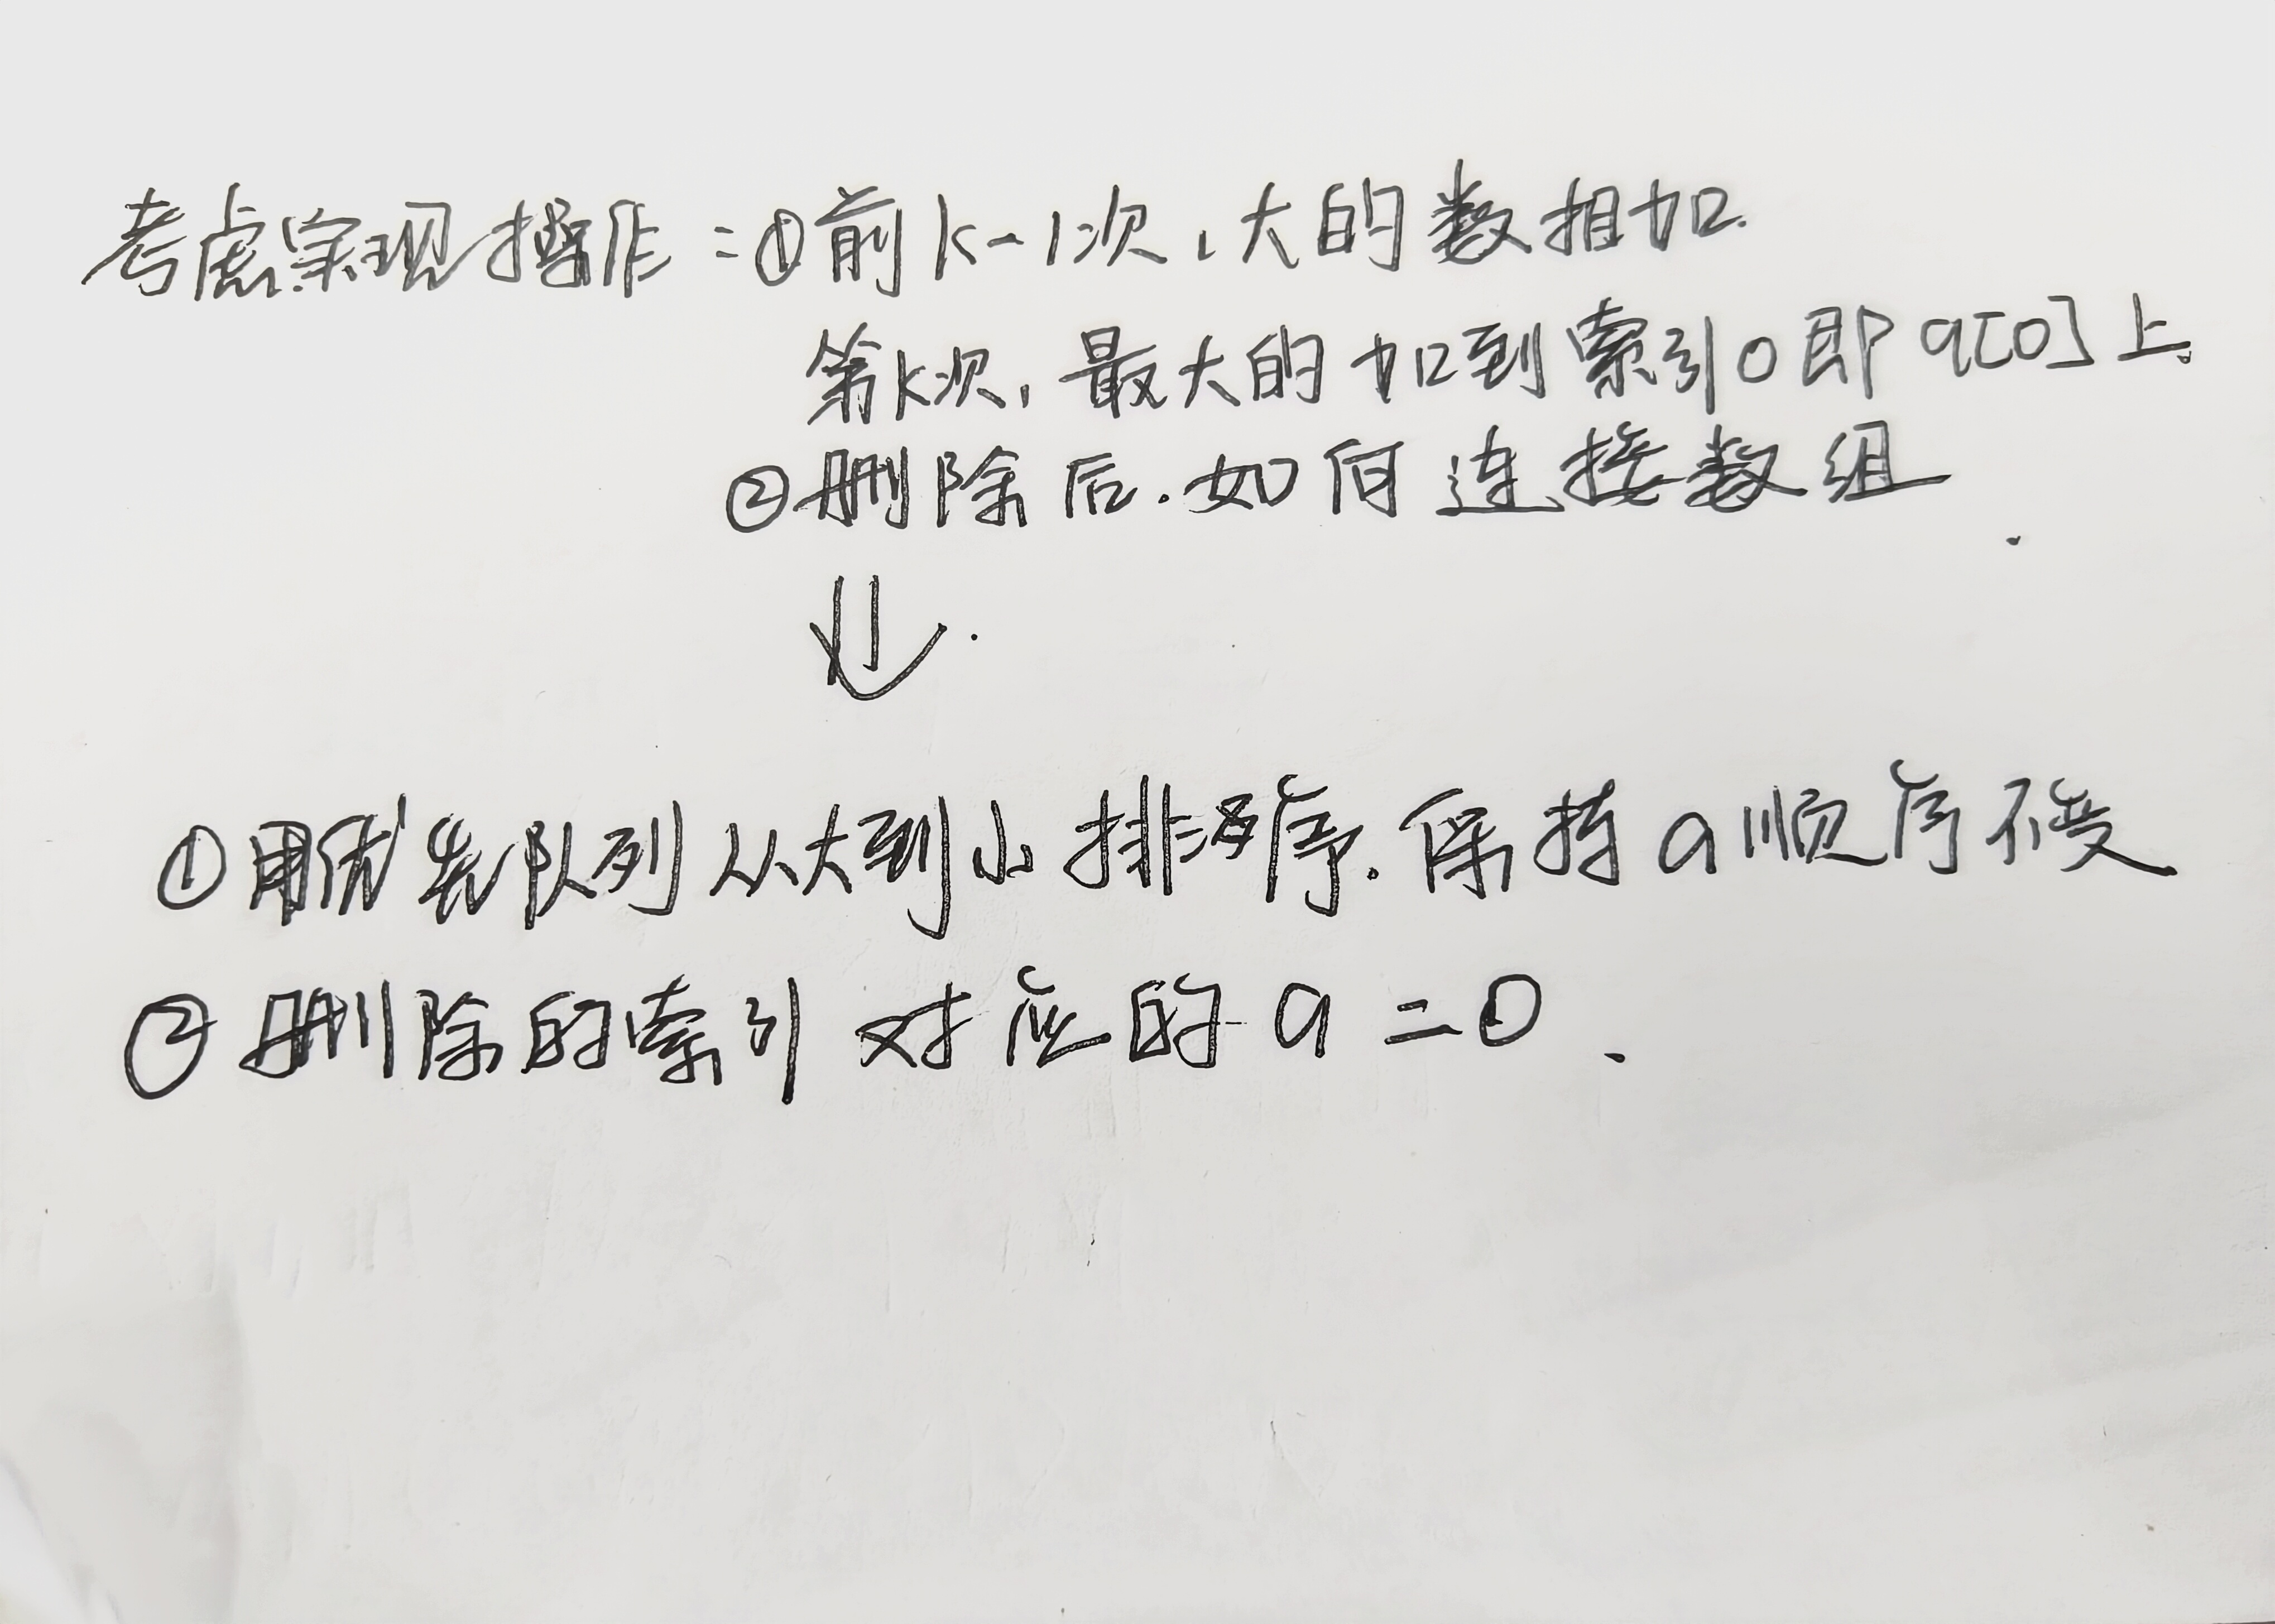 考虑实现操作：①前k-1次，大的数相加.
第k次，最大的加到索引0即a[0]上。
②删除后.如何连接数组
①用优先队列从大到小排序.保持a顺序不变
②删除的索引对应的a=0.